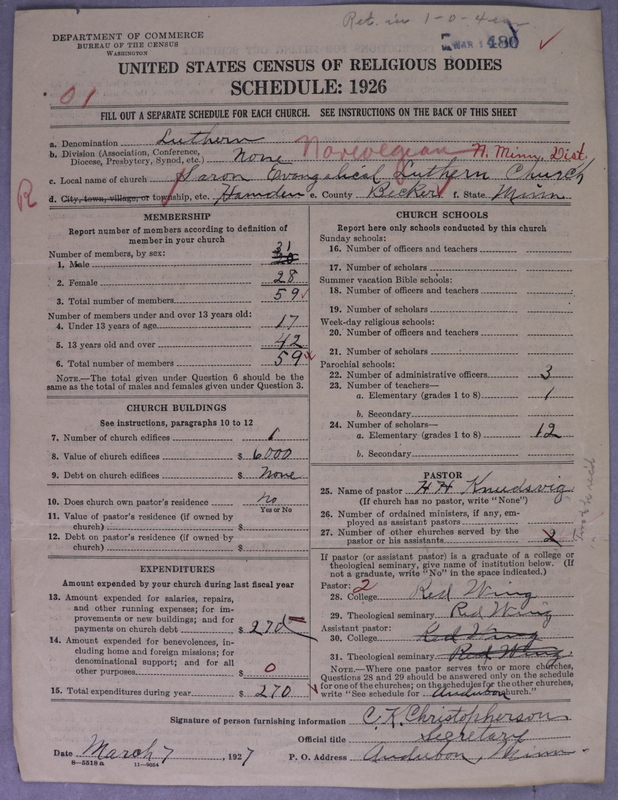 Ret. in 1-0-4
DEPARTMENT OF COMMERCE
BUREAU OF THE CENSUS
WASHINGTON
MAR 1 480
UNITED STATES CENSUS OF RELIGIOUS BODIES
SCHEDULE: 1926
01
FILL OUT A SEPARATE SCHEDULE FOR EACH CHURCH. SEE INSTRUCTIONS ON THE BACK OF THIS SHEET
a. Denomination Luthern
b. Division (Association, Conference, Diocese, Presbytery, Synod, etc.) None Norwegian N. Minn. Dist.
c. Local name of church Saron Evangelical Luthern Church
R
d. City, town, village, or township, etc. Hamden e. County Becker f. State Minn
MEMBERSHIP
Report number of members according to definition of
member in your church
Number of members, by sex:
1. Male 31
2. Female 28
3. Total number of members 59
Number of members under and over 13 years old:
4. Under 13 years of age 17
5. 13 years old and over 42
6. Total number of members 59
NOTE.—The total given under Question 6 should be the
same as the total of males and females given under Question 3.
CHURCH BUILDINGS
See instructions, paragraphs 10 to 12
7. Number of church edifices 1
8. Value of church edifices $ 6000
9. Debt on church edifices $ None
10. Does church own pastor's residence No
Yes or No
11. Value of pastor's residence (if owned by
church) $
12. Debt on pastor's residence (if owned by
church) $
EXPENDITURES
Amount expended by your church during last fiscal year
13. Amount expended for salaries, repairs,
and other running expenses; for im-
provements or new buildings; and for
payments on church debt $ 270
14. Amount expended for benevolences, in-
cluding home and foreign missions; for
denominational support; and for all
other purposes $ 0
15. Total expenditures during year $ 270
CHURCH SCHOOLS
Report here only schools conducted by this church
Sunday schools:
16. Number of officers and teachers
17. Number of scholars
Summer vacation Bible schools:
18. Number of officers and teachers
19. Number of scholars
Week-day religious schools:
20. Number of officers and teachers
21. Number of scholars
Parochial schools:
22. Number of administrative officers 3
23. Number of teachers—
a. Elementary (grades 1 to 8) 1
b. Secondary
24. Number of scholars—
a. Elementary (grades 1 to 8) 12
b. Secondary
PASTOR
25. Name of pastor H H Knudsvig
(If church has no pastor, write "None")
26. Number of ordained ministers, if any, em-
ployed as assistant pastors
27. Number of other churches served by the
pastor or his assistants 2
If pastor (or assistant pastor) is a graduate of a college or
theological seminary, give name of institution below. (If
not a graduate, write "No" in the space indicated.)
Pastor: 2
28. College Red Wing
29. Theological seminary Red Wing
Assistant pastor:
30. College Red Wing
31. Theological seminary Red Wing
NOTE.—Where one pastor serves two or more churches,
Questions 28 and 29 should be answered only on the schedule
for one of the churches; on the schedules for the other churches,
write "See schedule for Audubon church."
Signature of person furnishing information C. K. Christopherson
Official title Secretary
Date March 7, 1927 P. O. Address Audubon, Minn.
8—5518 a 11—9054